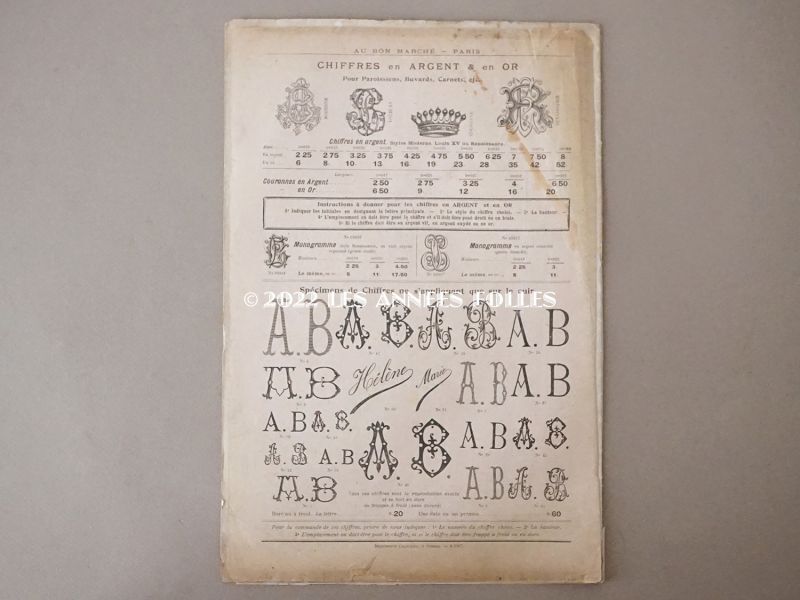 AU BON MARCHÉ — PARIS
CHIFFRES en ARGENT & en OR
Pour Paroissiens, Buvards, Carnets, etc.
Chiffres en argent. Styles Moderne Louis XV ou Renaissance.
En argent. 2 25 2 75 3 25 3 75 4 25 4 75 5 50 6 25 7 7 50 8
En or. 6 8 10 13 16 19 23 28 35 42 52
Couronnes en Argent 2 50 2 75 3 25 4 6 50
— en Or. 6 50 9 12 16 20
Instructions à donner pour les chiffres en ARGENT et en OR
1° Indiquer les initiales en désignant la lettre principale. — 2° Le style du chiffre choisi. — 3° La hauteur.
4° L'emplacement où doit être posé le chiffre et s'il doit être posé droit ou en biais.
5° Si le chiffre doit être en argent vif, en argent oxydé ou en or.
Monogramme style Renaissance,
Hauteurs
2 25 3 4.50
Le même, en or 8 11 17.50
Monogramme en argent
Hauteurs
2 25 3
Le même, en or 8 11
Spécimens de Chiffres ne s'appliquant que sur le cuir
© 2022 LES ANNÉES FOLLES
A.B A.B A.B A.B
A.B Hélène Marie A.B A.B
A.B A.B A.B A.B A.B
A.B A.B
A.B A.B A.B
Tous ces chiffres sont la reproduction exacte
et se font en doré
ou frappés à froid (sans dorure)
Doré ou à froid. La lettre. » 20 Une date ou un prénom. » 60
Pour la commande de ces chiffres, prière de nous indiquer : 1° Le numéro du chiffre choisi. — 2° La hauteur.
3° L'emplacement où doit être posé le chiffre, et si le chiffre doit être frappé à froid ou en doré.